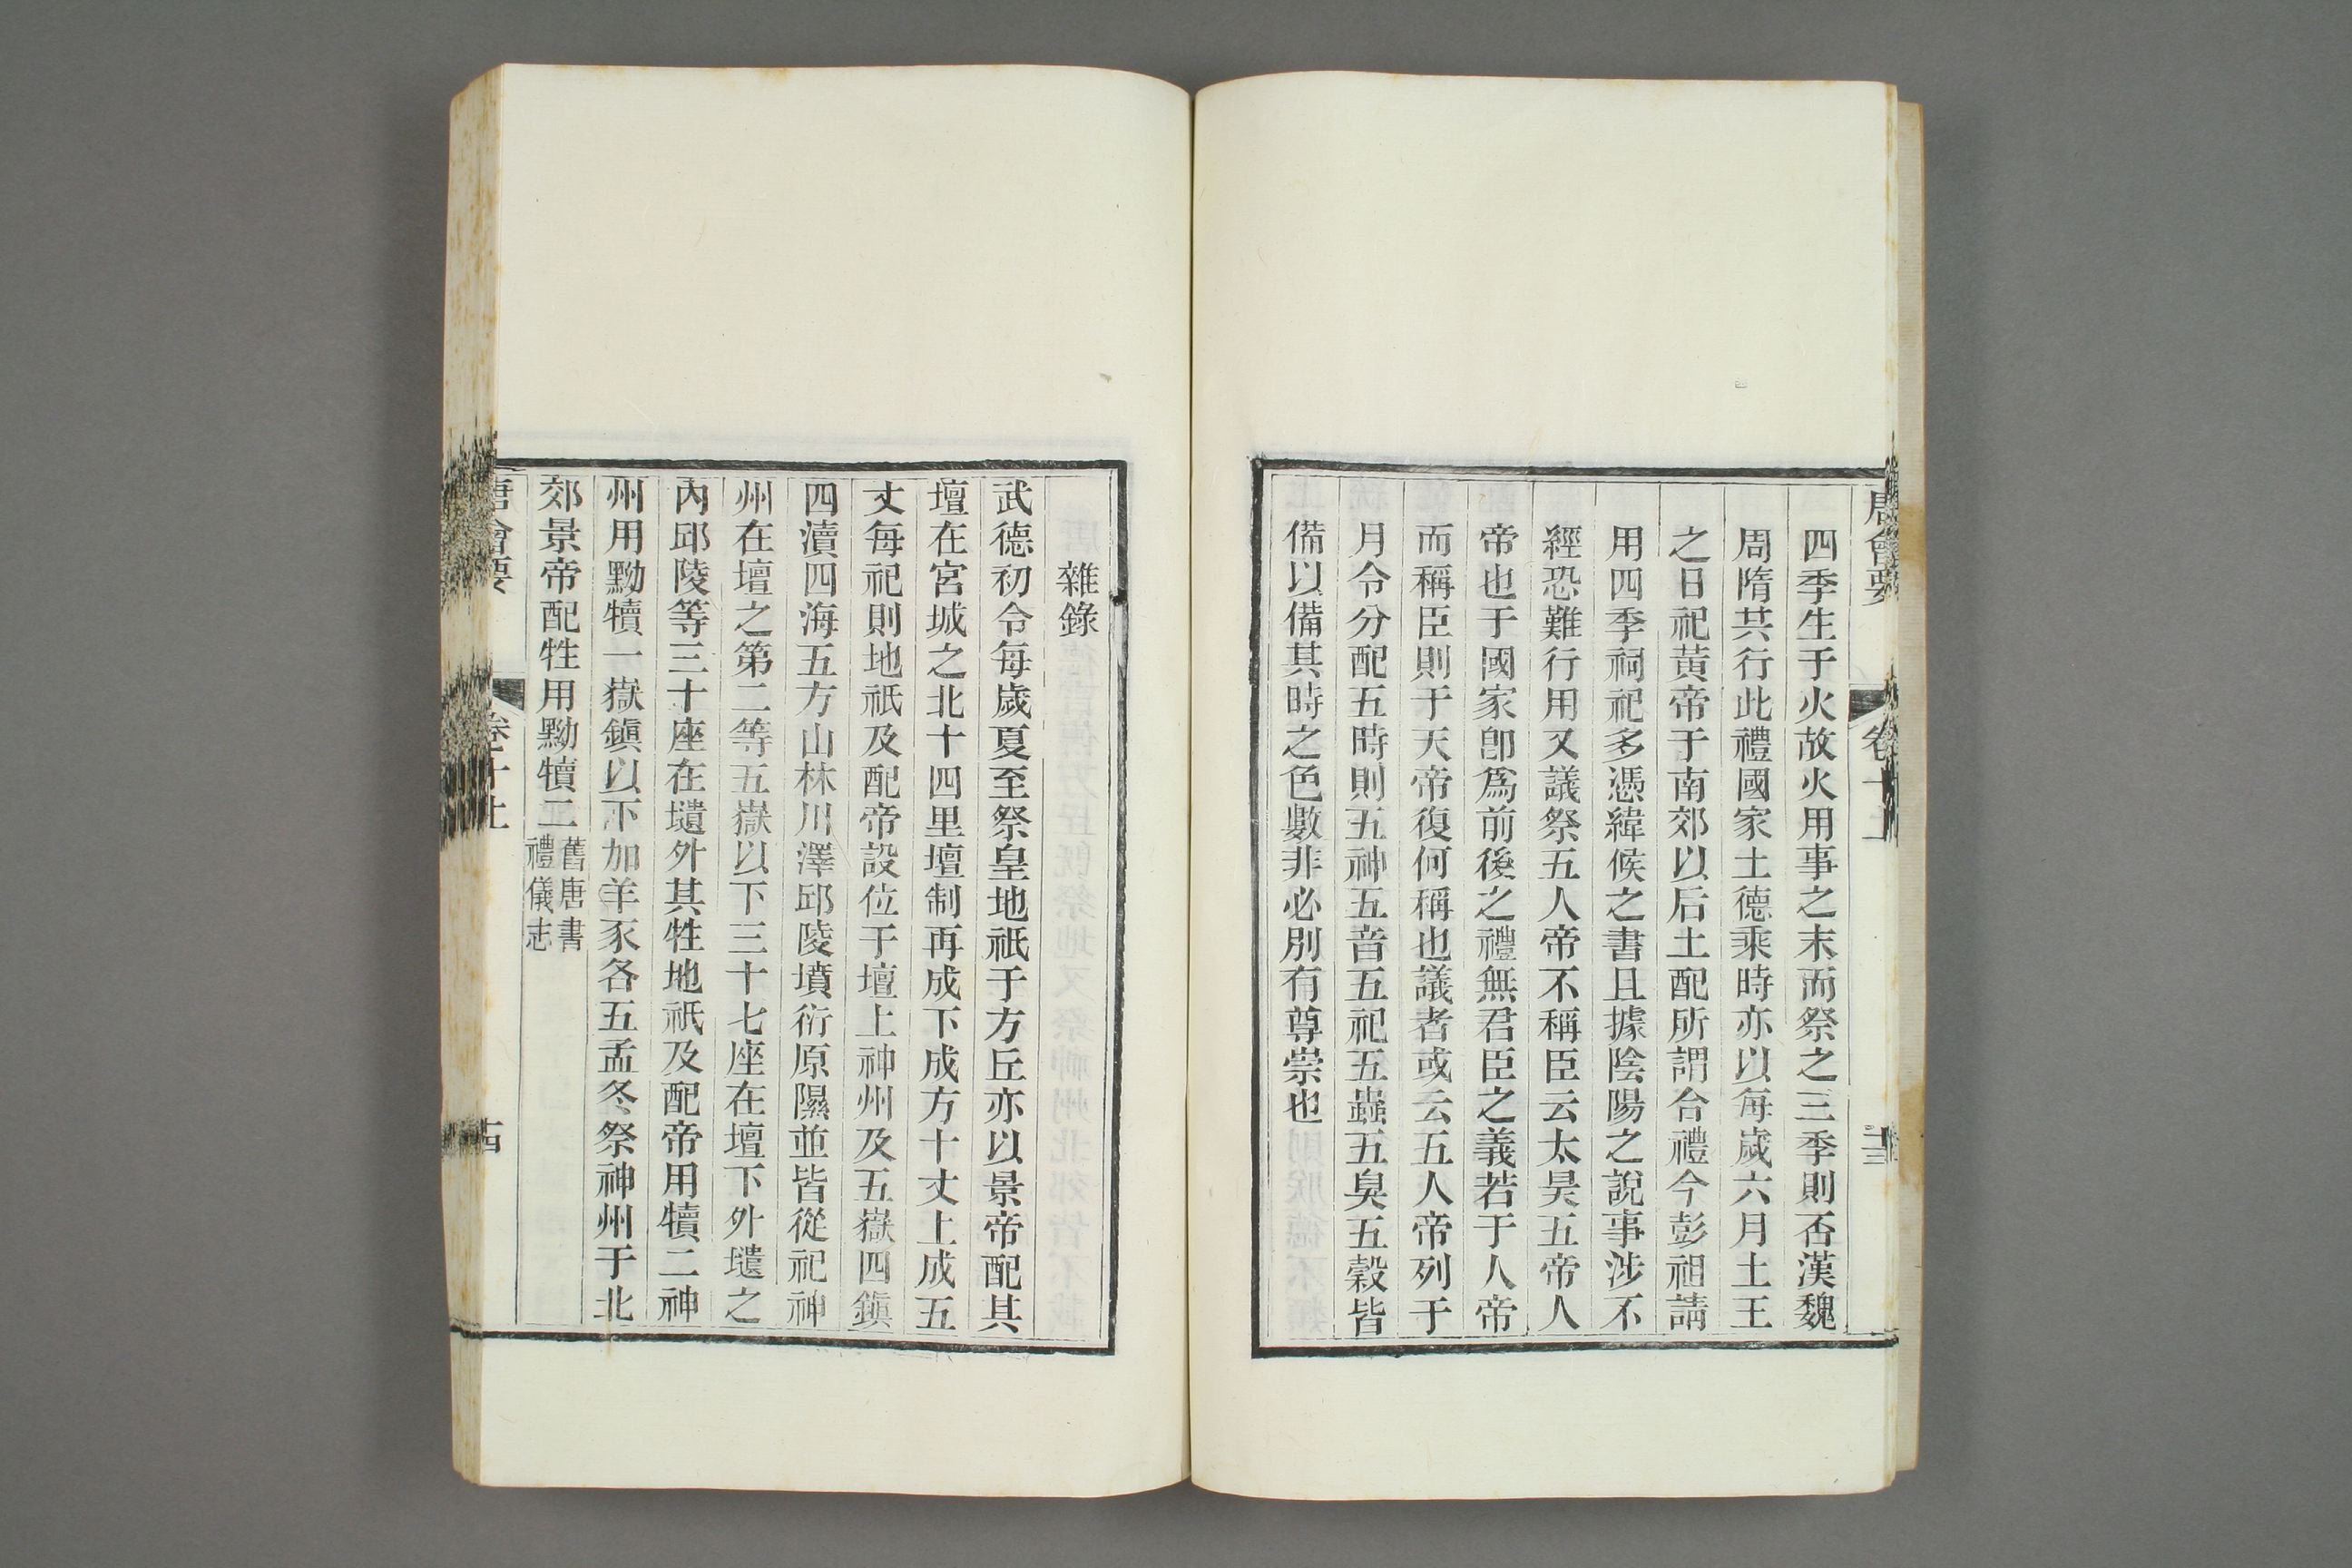 唐會要 卷十上 十三
四季生于火故火用事之末而祭之三季則否漢魏
周隋共行此禮國家土德乘時亦以每歲六月土王
之日祀黃帝于南郊以后土配所謂合禮今彭祖請
用四季祠祀多憑緯候之書且據陰陽之說事涉不
經恐難行用又議祭五人帝不稱臣云太昊五帝人
帝也于國家卽爲前後之禮無君臣之義若于人帝
而稱臣則于天帝復何稱也議者或云五人帝列于
月令分配五時則五神五音五祀五蟲五臭五穀皆
備以備其時之色數非必別有尊崇也
雜錄
武德初令每歲夏至祭皇地祇于方丘亦以景帝配其
壇在宮城之北十四里壇制再成下成方十丈上成五
丈每祀則地祇及配帝設位于壇上神州及五嶽四鎭
四瀆四海五方山林川澤邱陵墳衍原隰並皆從祀神
州在壇之第二等五嶽以下三十七座在壇下外壝之
內邱陵等三十座在壝外其牲地祇及配帝用犢二神
州用黝犢一嶽鎭以下加羊豕各五孟冬祭神州于北
郊景帝配牲用黝犢二舊唐書
禮儀志
唐會要 卷十上 十四